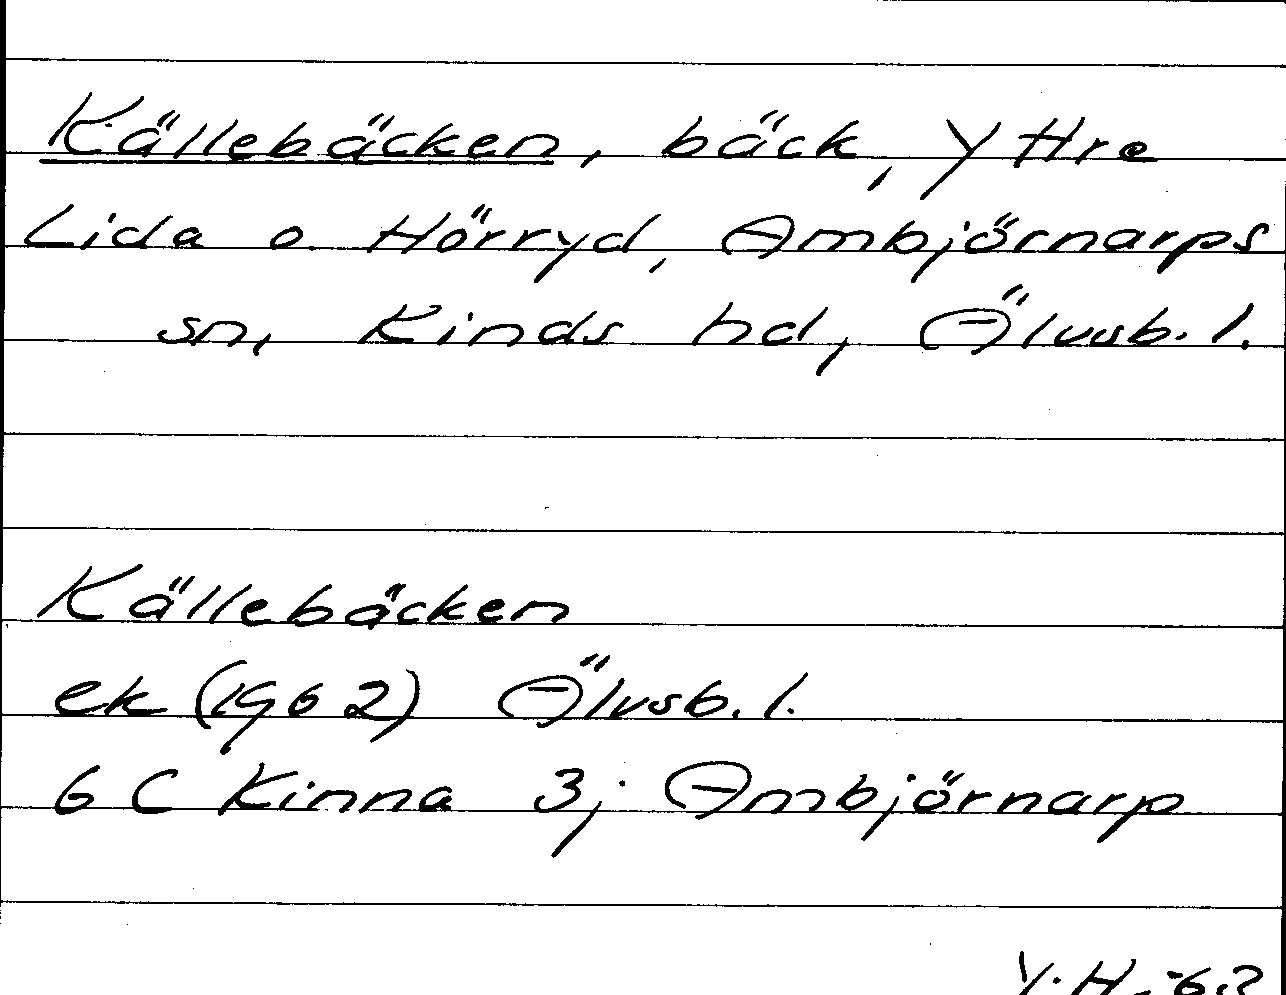 Källebäcken, bäck, Yttre
Lida o. Hörryd, Ambjörnarps
sn, Kinds hd, Älvsb. l.
Källebäcken
ek (1962) Älvsb. l.
6 C Kinna 3j Ambjörnarp